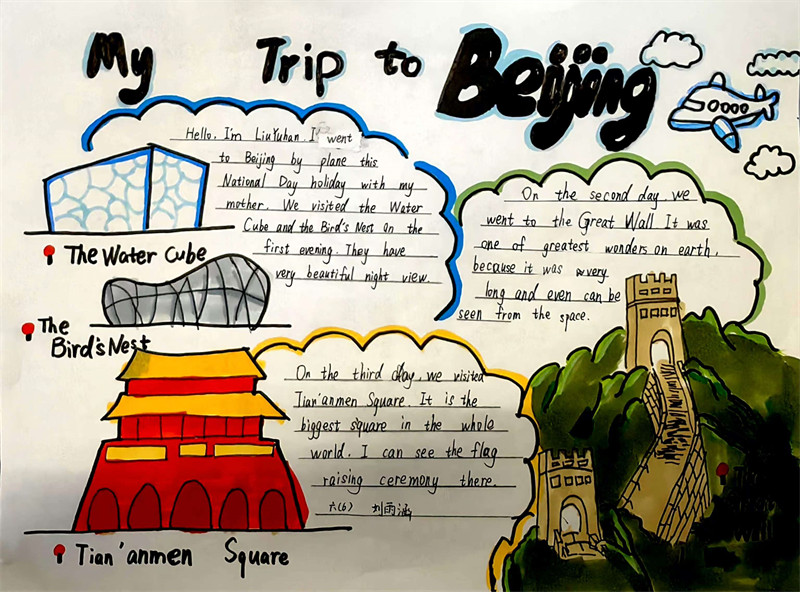 My Trip to Beijing
Hello. I'm LiuYuhan. I went
to Beijing by plane this
National Day holiday with my
mother. We visited the Water
Cube and the Bird's Nest on the
first evening. They have
very beautiful night view.
The Water Cube
The
Bird's Nest
On the second day, we
went to the Great Wall It was
one of greatest wonders on earth,
because it was very
long and even can be
seen from the space.
On the third day, we visited
Tian'anmen Square. It is the
biggest square in the whole
world. I can see the flag
raising ceremony there.
六(6) 刘雨涵
Tian'anmen Square